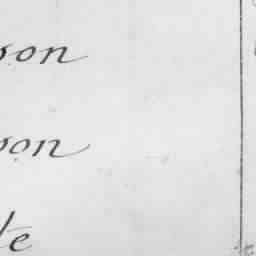 son
son
te